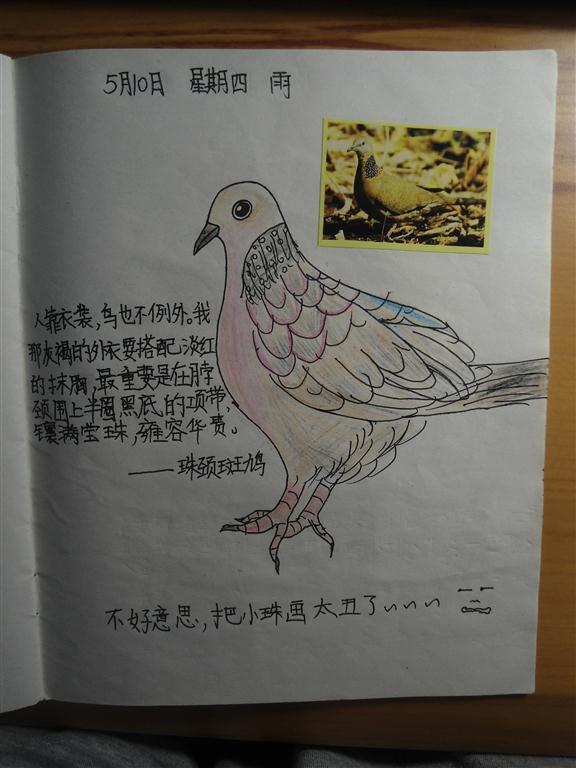 5月10日 星期四 雨
人靠衣装，鸟也不例外。我
那灰褐的外衣要搭配淡红
的抹胸，最重要是在脖
颈围上半圈黑底的项带，
镶满宝珠，雍容华贵。
——珠颈斑鸠
不好意思，把小珠画太丑了~~~